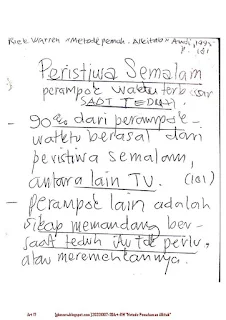 Rick Warren "Metode pemah. Alkitab" Andi, 1995
p. 161
Peristiwa Semalam
perampok waktu terbesar
SAAT TEDUH.
- 90% dari perampok-
waktu berasal dari
peristiwa semalam,
antara lain TV. (161)
- perampok lain adalah
sikap memandang ber-
saat teduh itu tdk perlu,
atau meremehkannya.